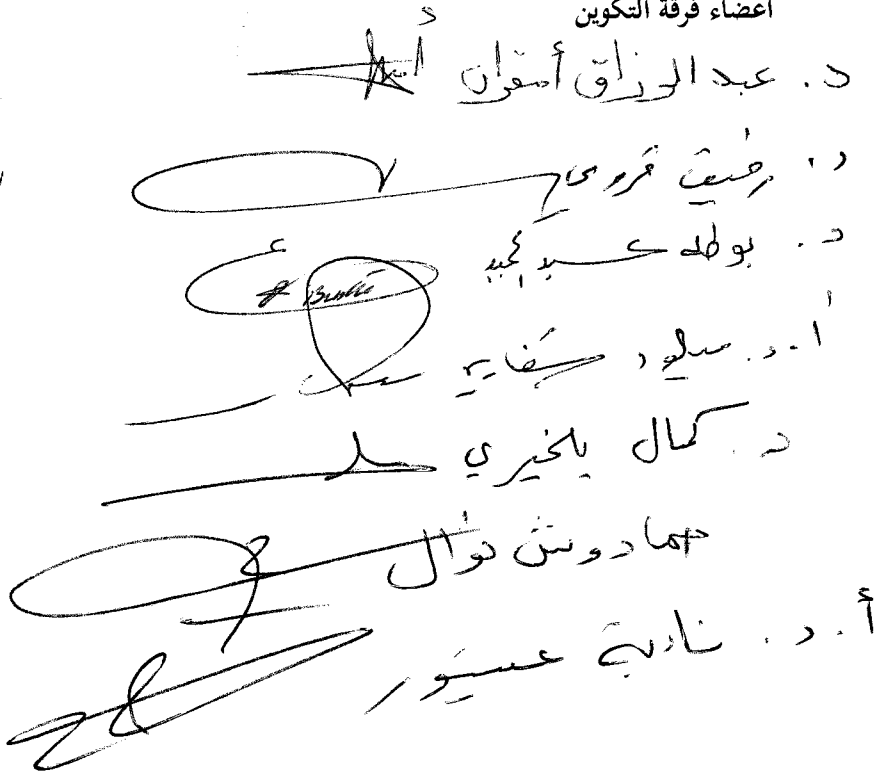 أعضاء فرقة التكوين
د. عبد الرزاق أمقران
د. رفيق قروي
د. بوطه عبد الحميد
أ.د. ميلود سفاري
د. كمال بلخيري
حمادوش نوال
أ.د. نادية عيشور